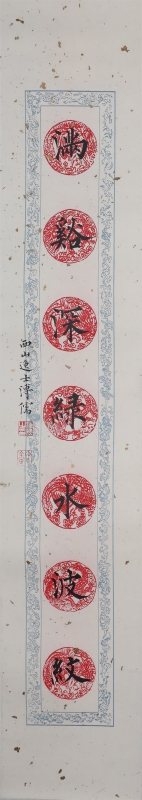 满谿深綠水波紋
西山逸士溥儒